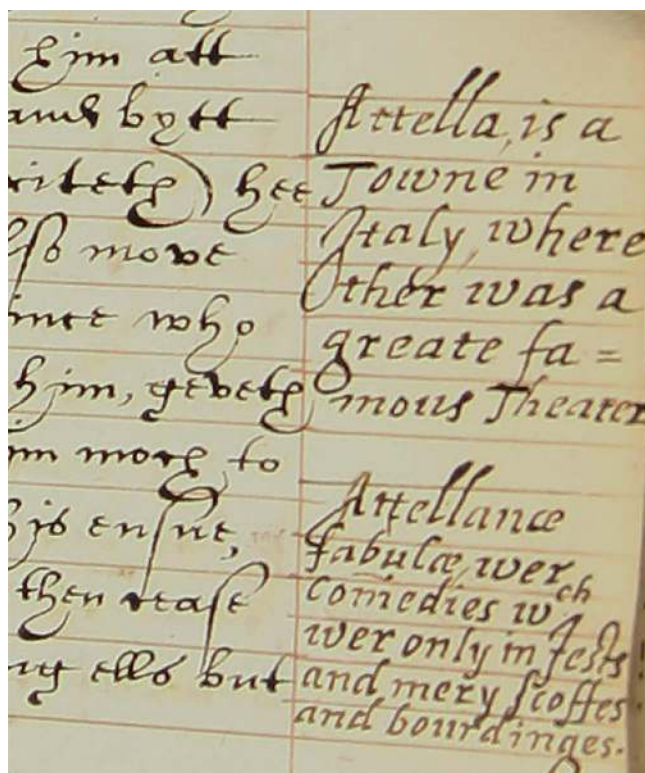 him att
bytt
riteth) hee
lso move
ince who
him, geveth
im more to
his ensue,
then cease
ng ells but
Attella, is a
Towne in
Italy, where
ther was a
greate fa=
mous Theater
Attellanæ
fabulæ, wer
comedies wch
wer only in Jests
and mery scoffes
and bourdinges.